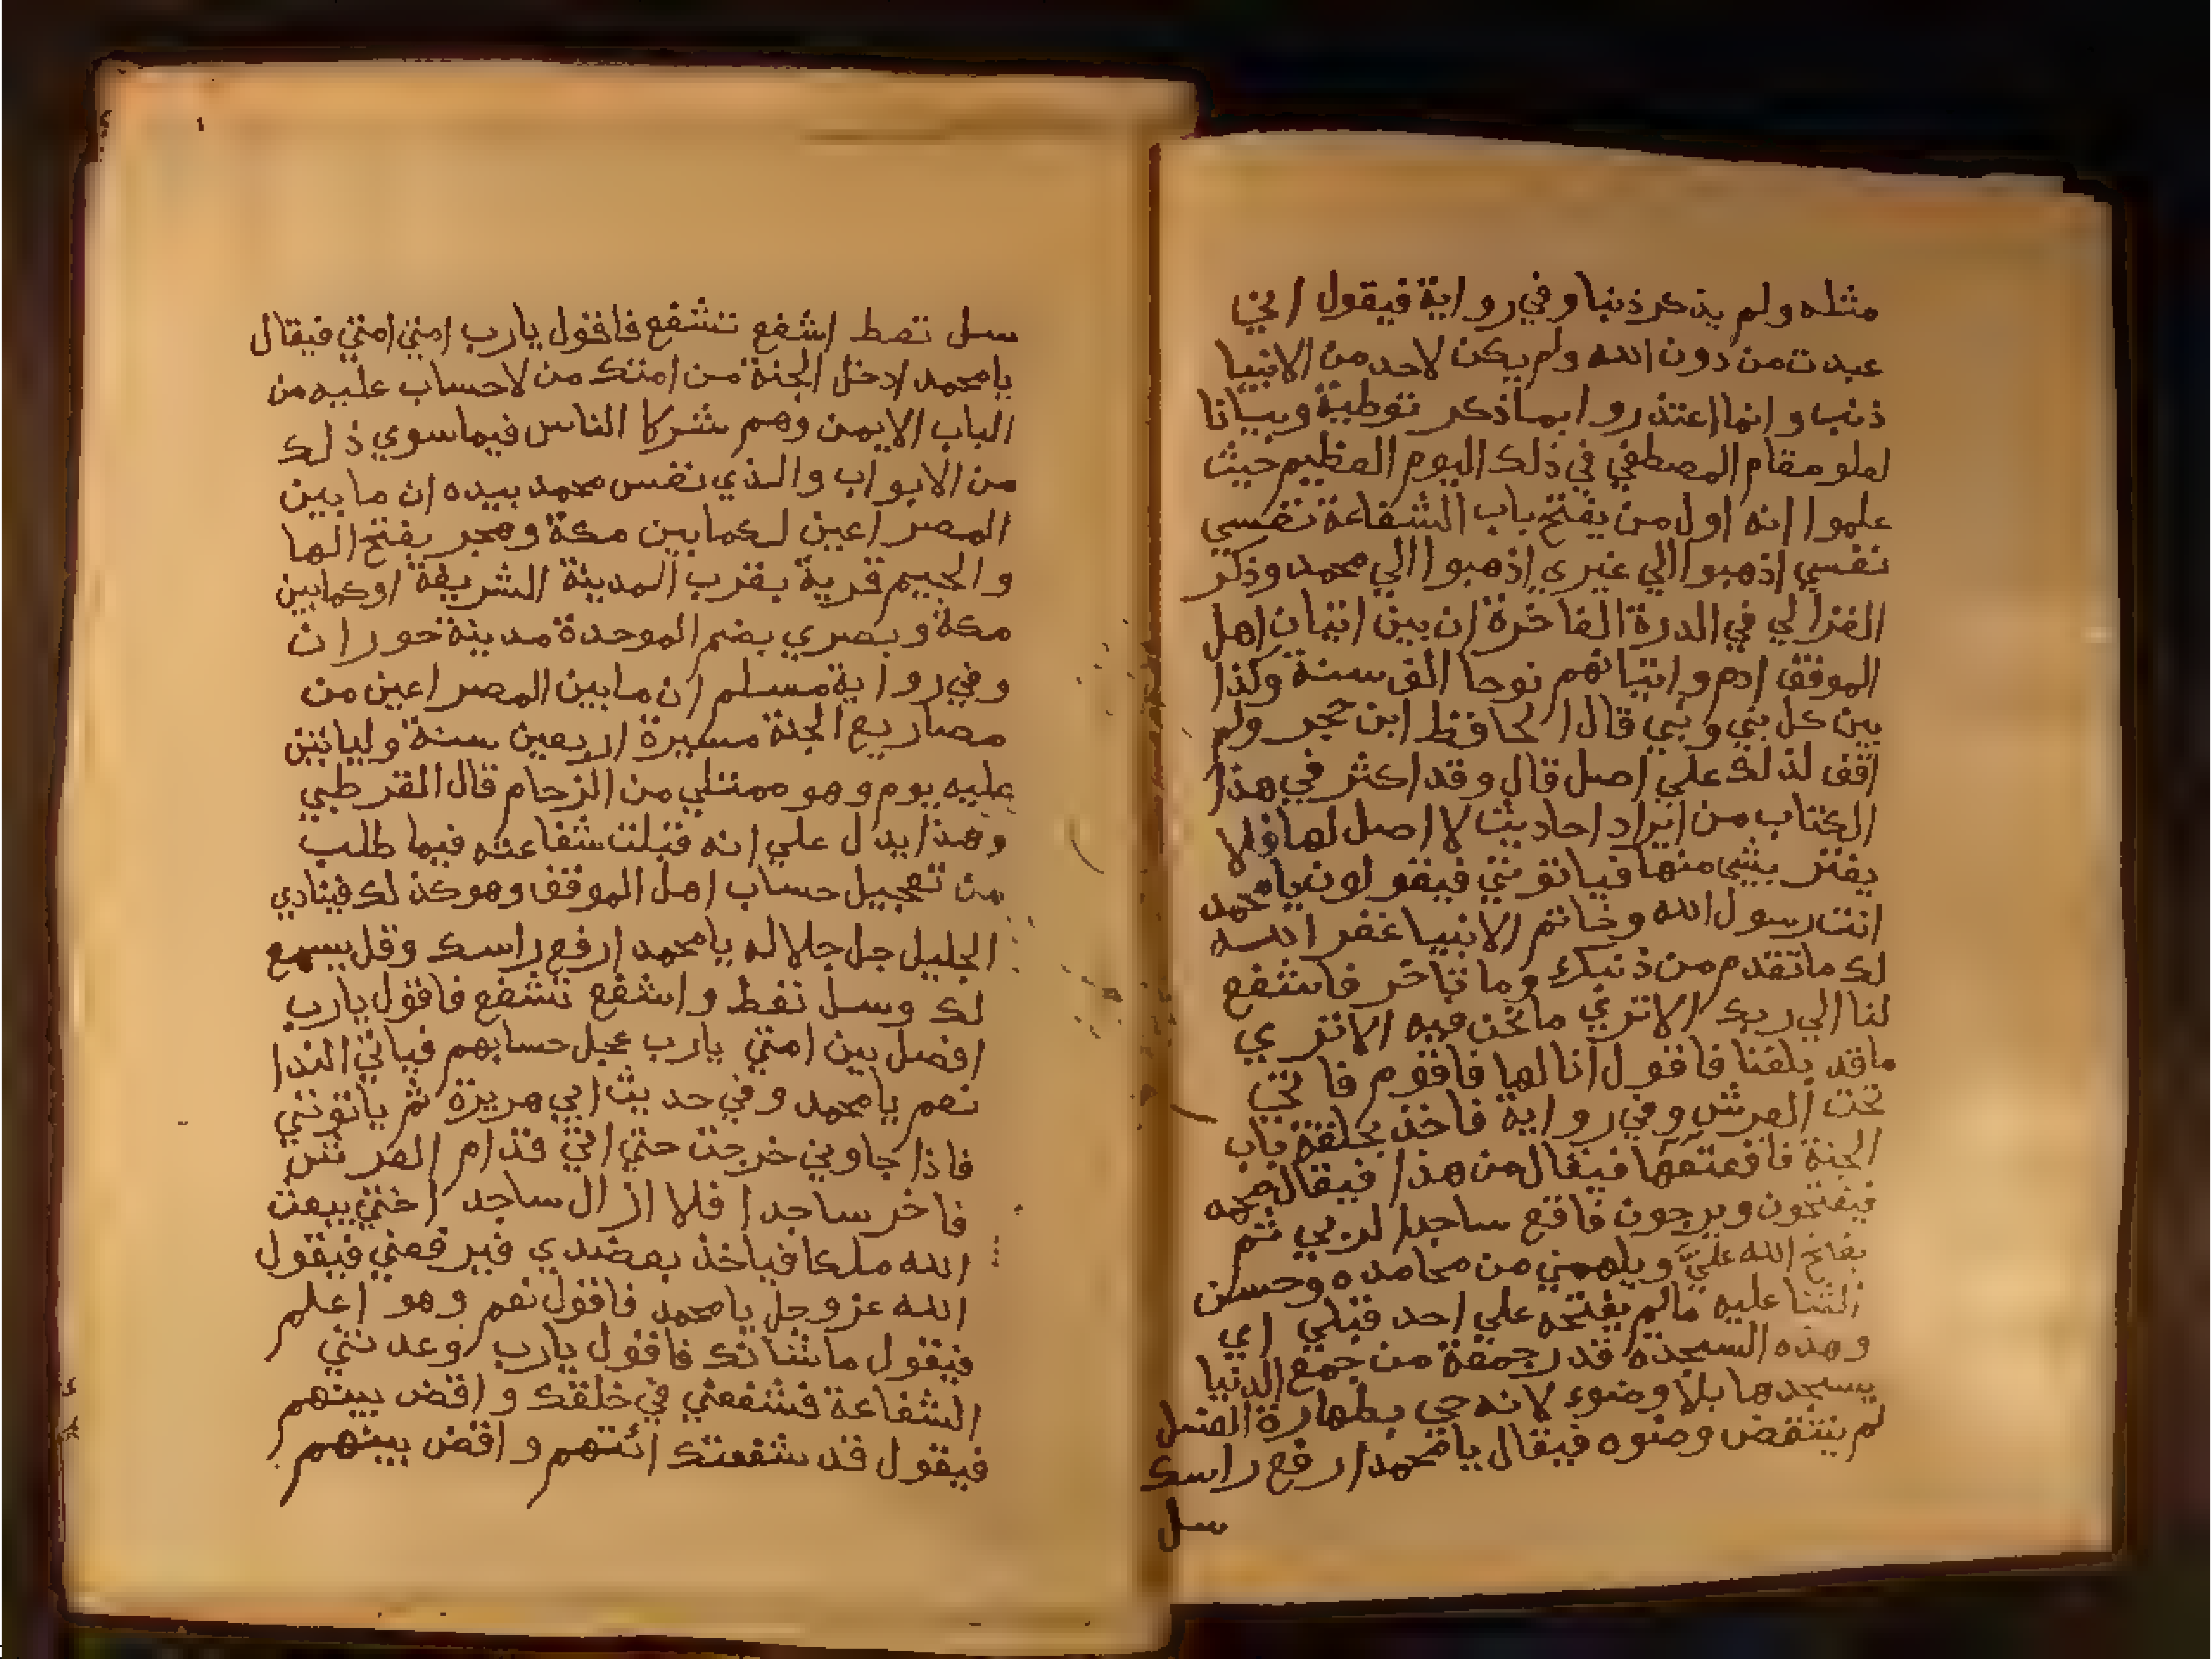 مثله ولم يذكر ذنبا وفي رواية فيقول اني
عبدت من دون الله ولم يكن لاحد من الانبيا
ذنب وانما اعتذروا بما ذكر توطية وبيانا
لعلو مقام المصطفي في ذلك اليوم العظيم حيث
علموا انه اول من يفتح باب الشفاعة نفسي
نفسي اذهبوا الي غيري اذهبوا الي محمد وذكر
الغزالي في الدرة الفاخرة ان بين اتيان اهل
الموقف ادم واتيانهم نوحا الف سنة وكذا
بين كل نبي ونبي قال الحافظ ابن حجر ولم
اقف لذلك علي اصل قال وقد اكثر في هذا
الكتاب من ايراد احاديث لا اصل لها فلا
يغتر بشي منها فياتوني فيقولون يا محمد
انت رسول الله وخاتم الانبيا غفر الله
لك ما تقدم من ذنبك وما تاخر فاشفع
لنا الي ربك الا تري ما نحن فيه الا تري
ما قد بلغنا فاقول انا لها فاقوم فاتي
تحت العرش وفي رواية فاخذ بحلقة باب
الجنة فاقعقعها فيقال من هذا فيقال محمد
فيفتحون ويرحبون فاقع ساجدا لربي ثم
يفتح الله علي ويلهمني من محامده وحسن
الثنا عليه مالم يفتحه علي احد قبلي اي
وهذه السجدة قدر جمعة من جمع الدنيا
يسجدها بلا وضوء لانه حي بطهارة الغسل
لم ينتقض وضوه فيقال يا محمد ارفع راسك
سل
سل تعط اشفع تشفع فاقول يارب امتي امتي فيقال
يا محمد ادخل الجنة من امتك من لاحساب عليه من
الباب الايمن وهم شركا الناس فيما سوي ذلك
من الابواب والذي نفس محمد بيده ان ما بين
المصراعين لكما بين مكة وهجر بفتح الها
والجيم قرية بقرب المدينة الشريفة اوكما بين
مكة وبصري بضم الموحدة مدينة حوران
وفي رواية مسلم ان ما بين المصراعين من
مصاريع الجنة مسيرة اربعين سنة ولياتين
عليه يوم وهو ممتلي من الزحام قال القرطبي
وهذا يدل علي انه قبلت شفاعته فيما طلب
من تعجيل حساب اهل الموقف وهو كذلك فينادي
الجليل جل جلاله يا محمد ارفع راسك وقل يسمع
لك وسل تعط واشفع تشفع فاقول يارب
افصل بين امتي يارب عجل حسابهم فياتي الندا
نعم يا محمد وفي حديث ابي هريرة ثم ياتونني
فاذا جاوني خرجت حتي اتي قدام العرش
فاخر ساجدا فلا ازال ساجد احتي يبعث
الله ملكا فياخذ بعضدي فيرفعني فيقول
الله عز وجل يا محمد فاقول نعم وهو اعلم
فيقول ما شانك فاقول يارب وعدتني
الشفاعة فشفعني في خلقك واقض بينهم
فيقول قد شفعتك ائتهم واقض بينهم